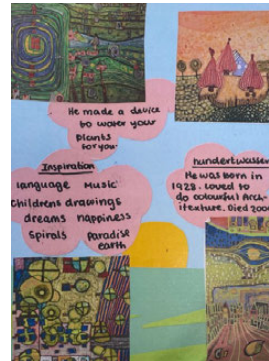 He made a device
to water your
plants
for you.
Inspiration
language Music
Childrens drawings
dreams happiness
Spirals Paradise
earth
hundertwasser
He was born in
1928. Loved to
do colourful Arch-
itexture. Died 200